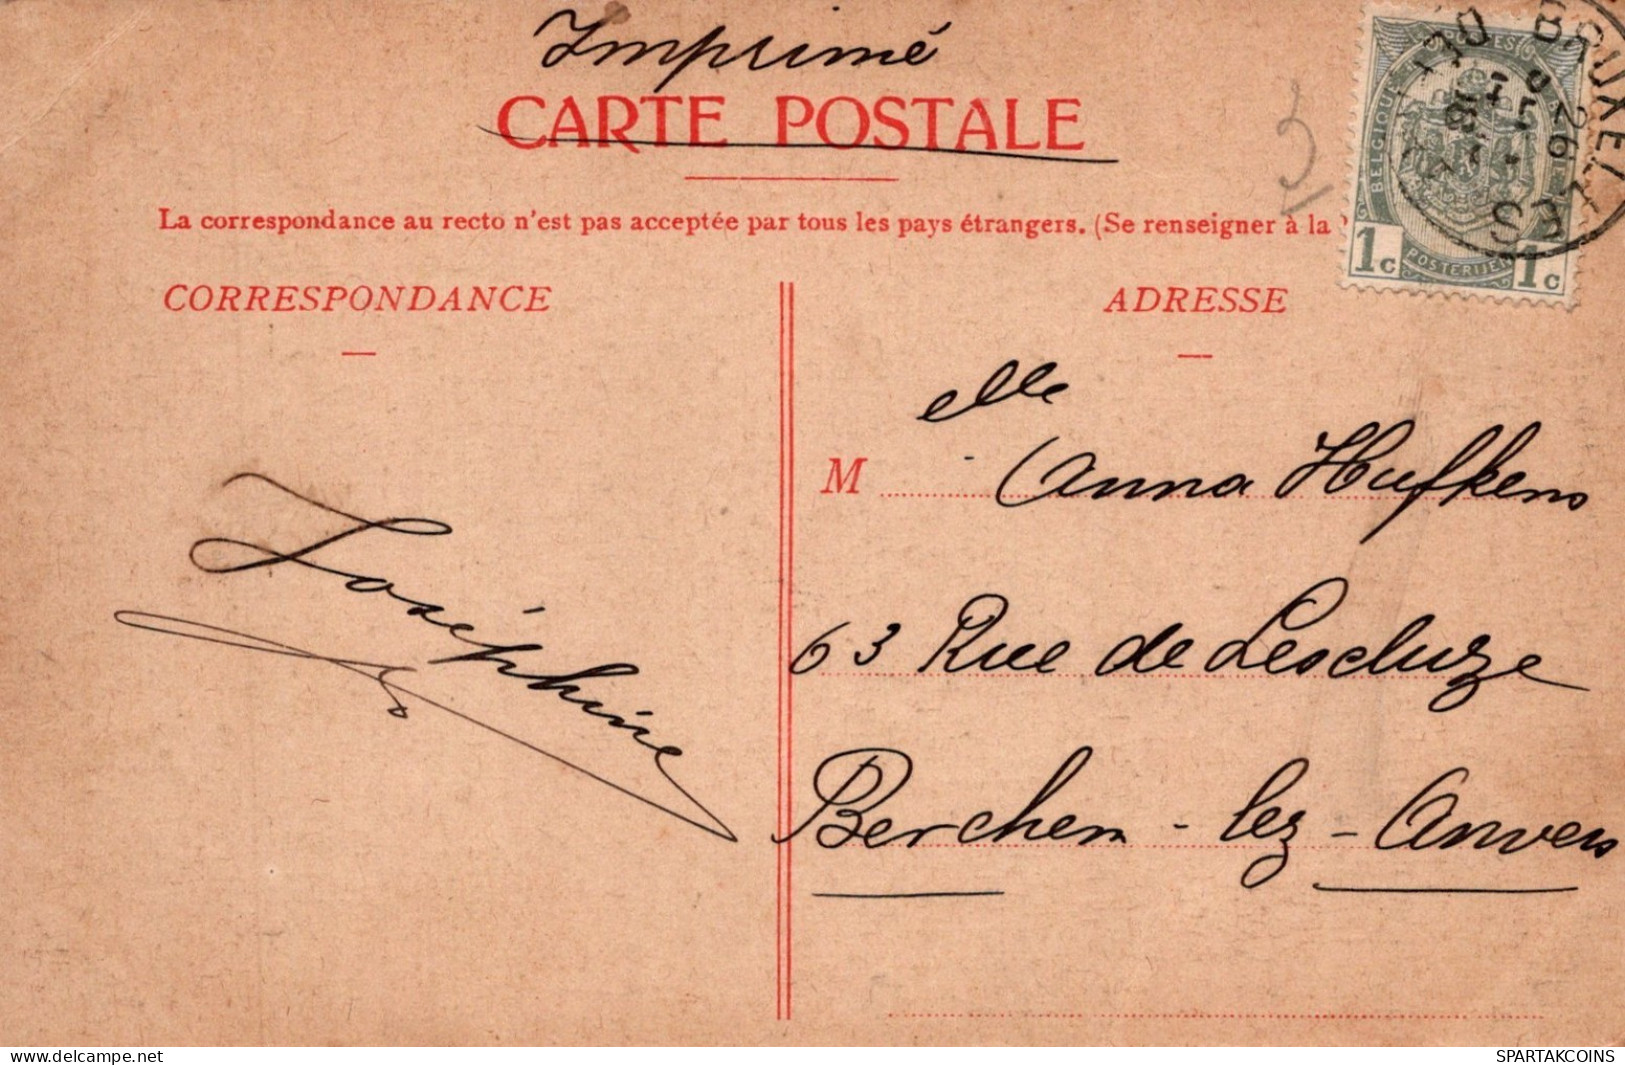 Imprimé
CARTE POSTALE
La correspondance au recto n'est pas acceptée par tous les pays étrangers. (Se renseigner à la
CORRESPONDANCE
ADRESSE
BELGIQUE
POSTERIJEN
1c 1c
BRUXELLES
26
elle
M Anna Hufkens
63 Rue de Lescluze
Berchem-lez-Anvers
Joséphine
delcampe.net
SPARTAKCOINS